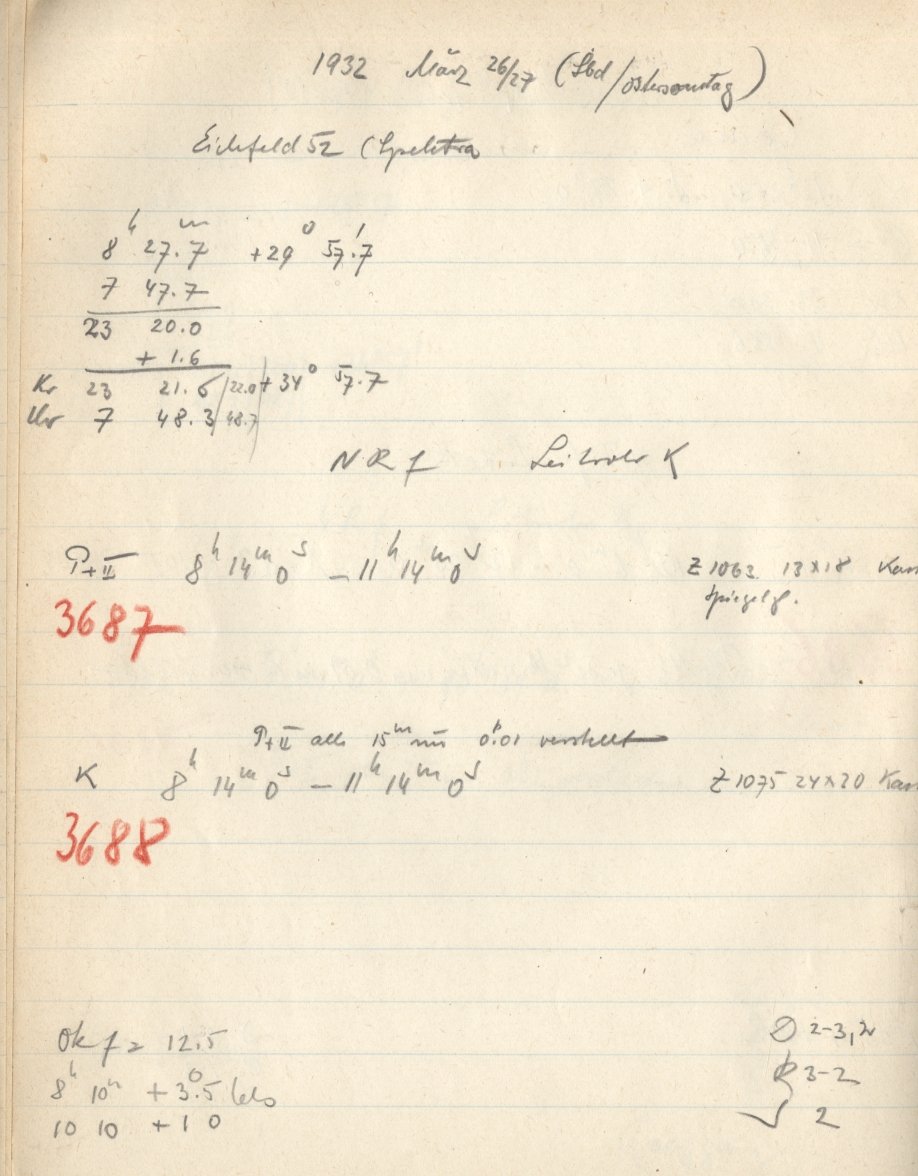 1932 März 26/27 (Sbd/Ostersonntag)
Eichfeld 52 (Spektra
8ʰ 27.ᵐ7 +29° 57.'7
7 47.7
23 20.0
+ 1.6
Kr 23 21.6 /22.0 + 34° 57.7
Uhr 7 48.3 /48.7
N R f Leitrohr K
P+II 8ʰ 14ᵐ 0ˢ – 11ʰ 14ᵐ 0ˢ Z 1063 13x18 Kass
Spiegelgl.
3687
P+II alle 15ᵐ um 0.01 verstellt
K 8ʰ 14ᵐ 0ˢ – 11ʰ 14ᵐ 0ˢ Z 1075 24x30 Kass
3688
Ok f = 12.5
8ʰ 10ᵐ + 3°.5 Cels
10 10 + 1 0
2-3, 2
3-2
2